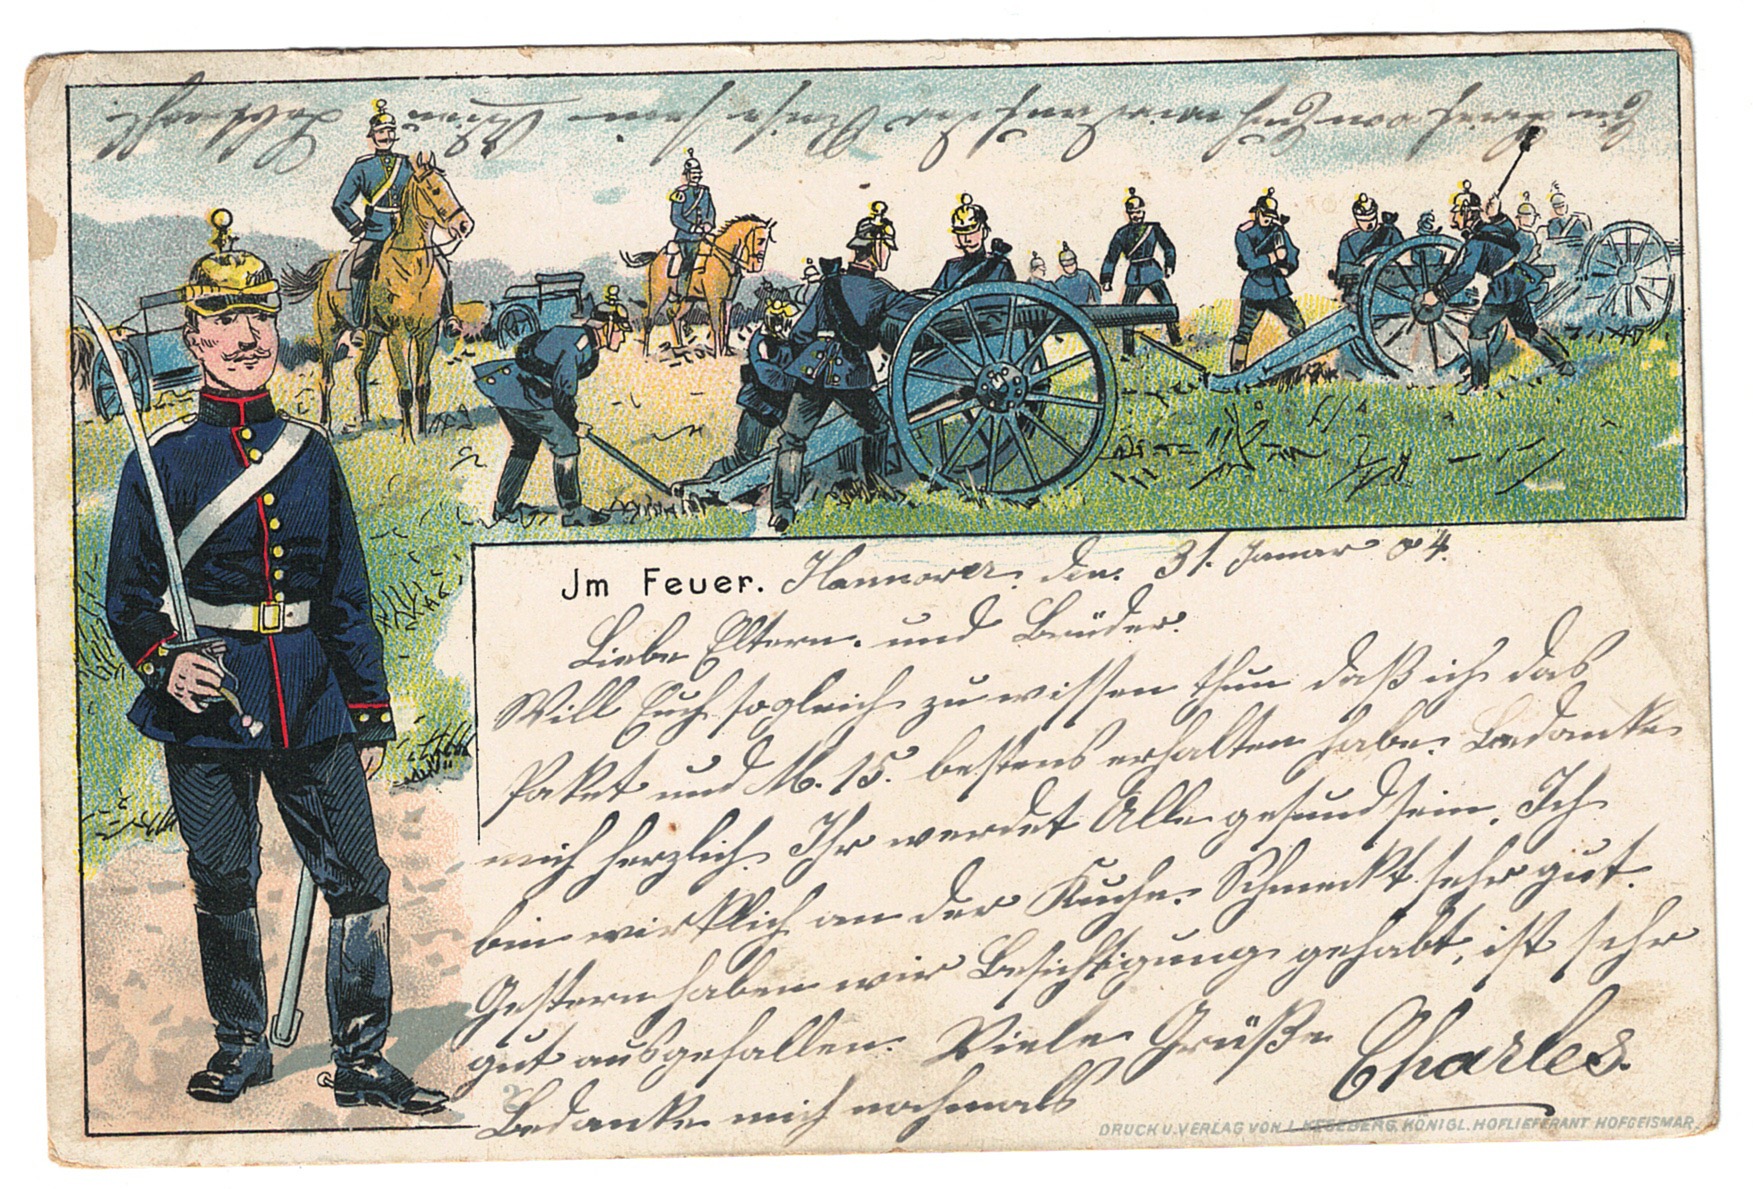 Im Feuer. Hannover, den: 31. Januar 04.
Liebe Eltern. und Brüder.
Will Euch sogleich zu wissen thun daß ich das
Paket und M. 15. bestens erhalten habe. Bedanke
mich herzlich. Ihr werdet Alle gesund sein. Ich
bin wirklich an der Kuche. Schmeckt sehr gut.
Gestern haben wir Besichtigung gehabt, ist sehr
gut ausgefallen. Viele Grüße Charles.
Bedanke mich nochmals
DRUCK U. VERLAG VON L. KEGEBERG, KÖNIGL. HOFLIEFERANT HOFGEISMAR.